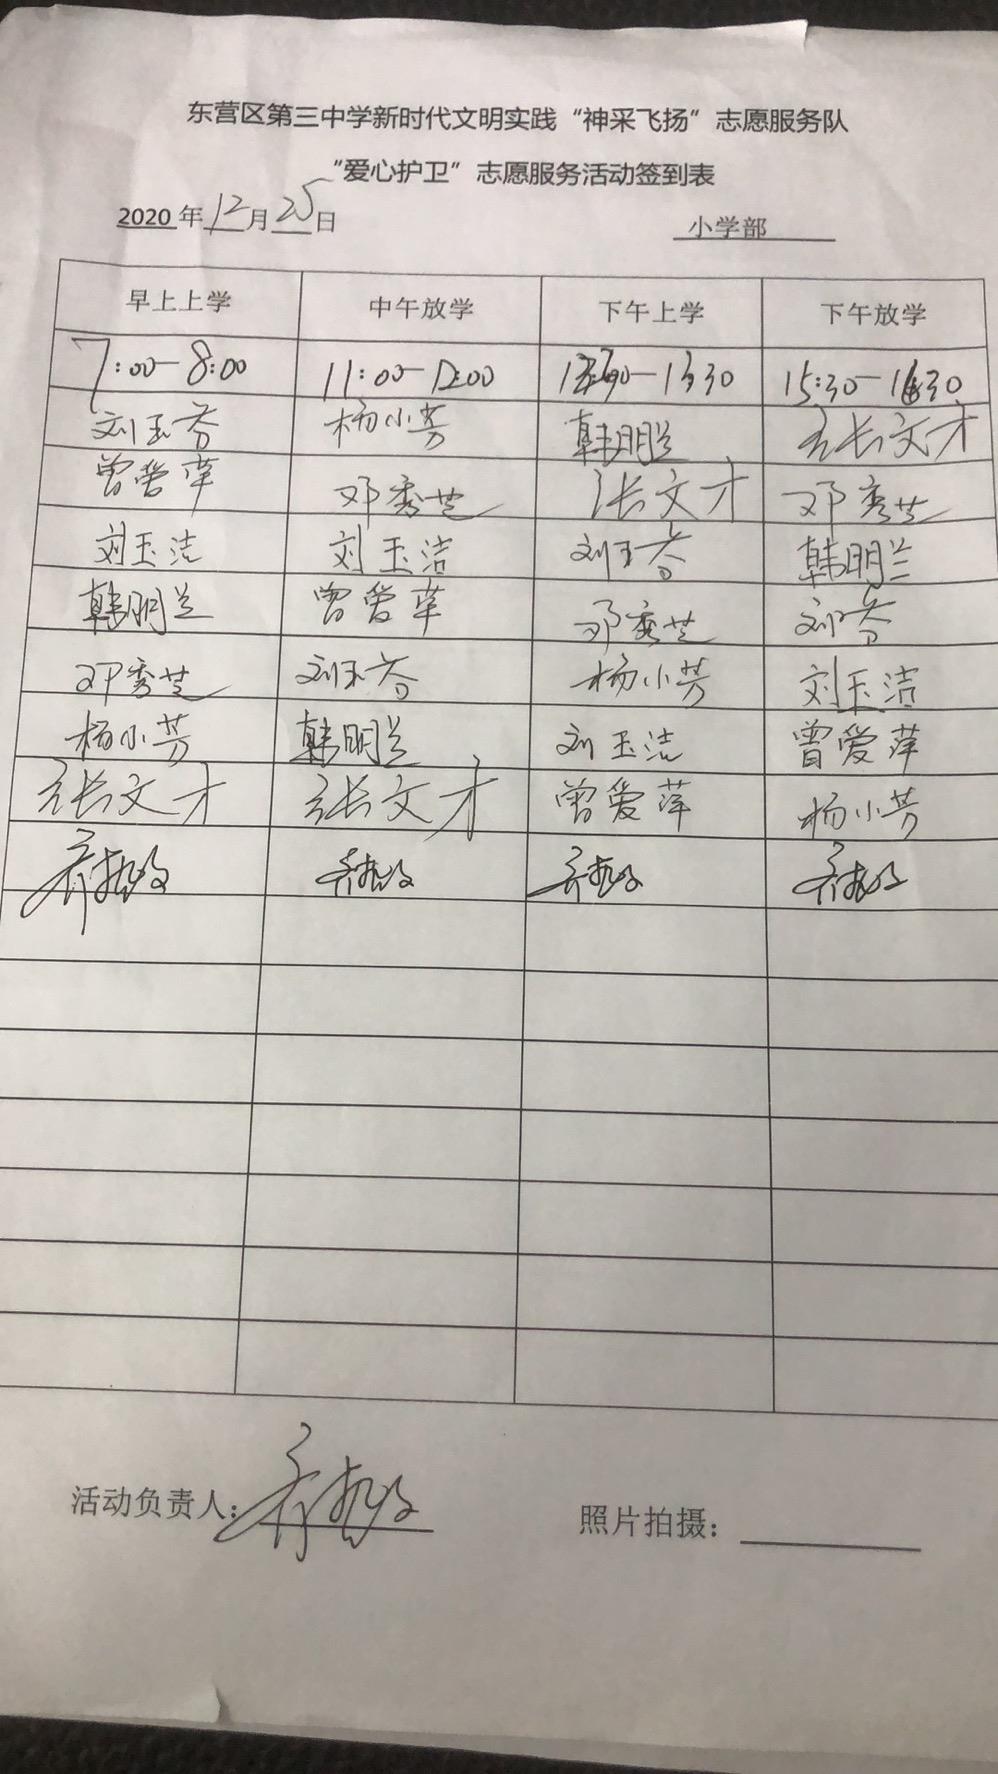 东营区第三中学新时代文明实践“神采飞扬”志愿服务队
“爱心护卫”志愿服务活动签到表
2020年12月25日 小学部
早上上学 中午放学 下午上学 下午放学
7:00-8:00 11:00-12:00 -13:30 15:30-16:30
刘玉芬 杨小芳 韩明兰 张文才
曾爱萍 邓秀芝 张文才 邓秀芝
刘玉洁 刘玉洁 刘玉芬 韩明兰
韩明兰 曾爱萍 邓秀芝 刘玉芬
邓秀芝 刘玉芬 杨小芳 刘玉洁
杨小芳 韩明兰 刘玉洁 曾爱萍
张文才 张文才 曾爱萍 杨小芳
活动负责人： 照片拍摄：